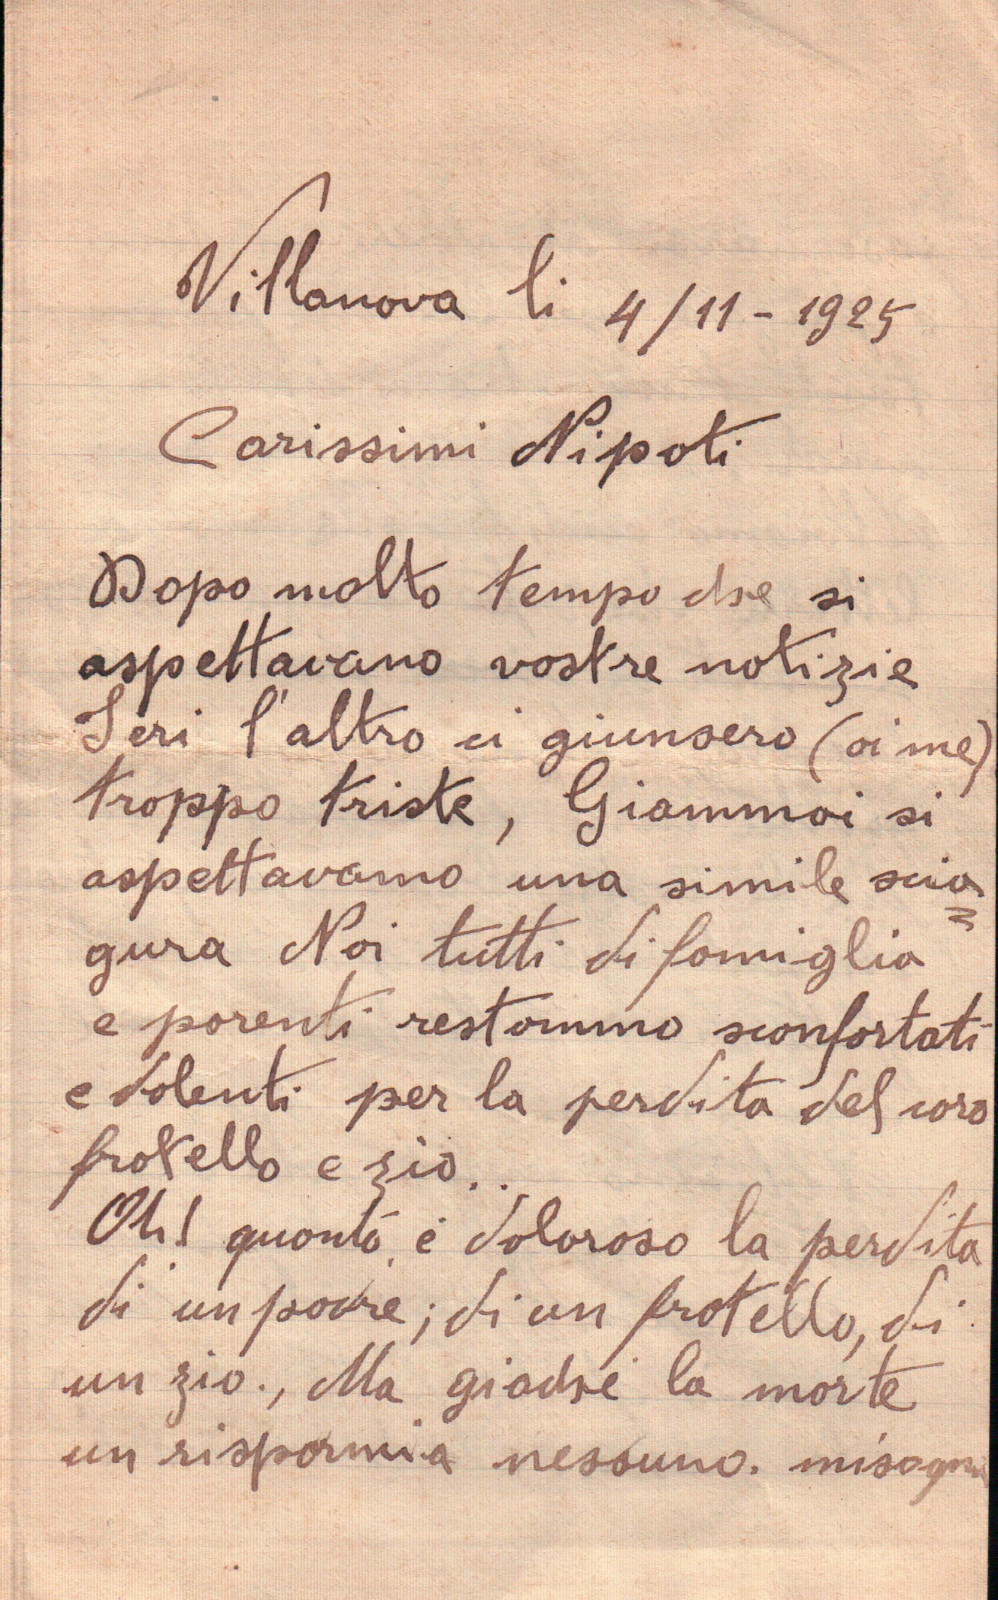 Villanova li 4/11-1925
Carissimi Nipoti
Dopo molto tempo che si
aspettavano vostre notizie
Ieri l'altro ci giunsero (oi me)
troppo triste, Giammai si
aspettavamo una simile scia=
gura Noi tutti di famiglia
e parenti restammo sconfortati
e dolenti per la perdita del caro
fratello e zio..
Oh! quanto è doloroso la perdita
di un padre; di un fratello, di
un zio., Ma giachè la morte
un risparmia nessuno.